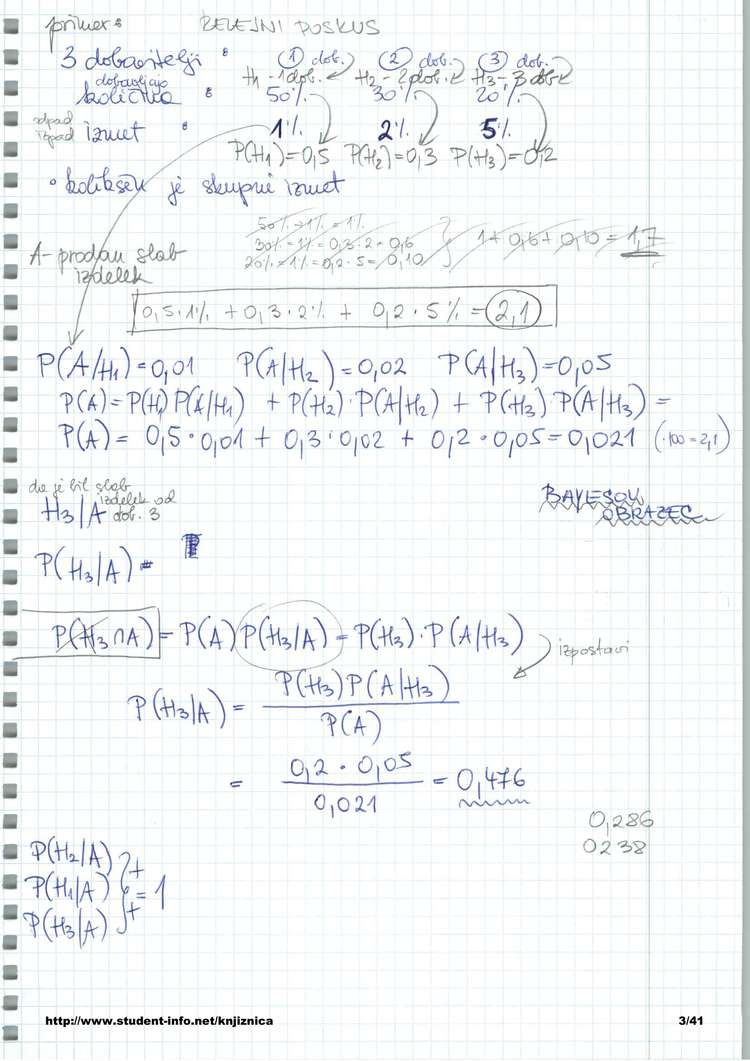 primer: RELEJNI POSKUS
3 dobavitelji : ① dob. ② dob. ③ dob.
dobavljajo H1 - 1 dob. H2 - 2 dob. H3 - 3 dob
količina : 50% 30% 20%
odpad
izpad izmet : 1% 2% 5%
P(H₁)=0,5 P(H₂)=0,3 P(H₃)=0,2
• kolikšen je skupni izmet
50% → 1% = 1%
30% = 1% = 0,3 · 2 = 0,6
20% = 1% = 0,2 · 5 = 0,10
1 + 0,6 + 0,10 = 1,7
A - prodan slab
izdelek
0,5 · 1% + 0,3 · 2% + 0,2 · 5% = 2,1
P(A/H₁)=0,01 P(A|H₂)=0,02 P(A|H₃)=0,05
P(A)=P(H₁)P(A|H₁) + P(H₂)·P(A|H₂) + P(H₃)·P(A|H₃) =
P(A) = 0,5·0,01 + 0,3·0,02 + 0,2·0,05=0,021 (·100=2,1)
da je bil slab
izdelek od
H₃|A dob. 3
BAYESOV
OBRAZEC
P(H₃|A) =
P(H₃∩A) = P(A)P(H₃|A) = P(H₃)·P(A|H₃)
izpostavi
P(H₃|A) = P(H₃)P(A|H₃)
P(A)
= 0,2 · 0,05 = 0,476
0,021
0,286
0238
P(H₂|A) +
P(H₁|A) = 1
P(H₃|A) +
http://www.student-info.net/knjiznica 3/41